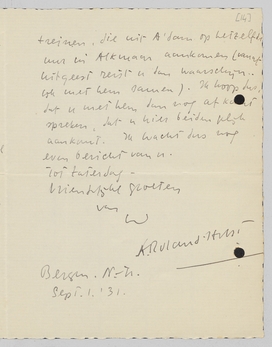 [14]
treinen, die uit A'dam op hetzelfde
uur in Alkmaar aankomen (vanaf
Uitgeest reist u dan waarschijn-
lijk met hem samen). Ik hoop dus,
dat u met hem dan nog af kunt
spreken, dat u hier beiden gelijk
aankomt. Ik wacht dus nog
even bericht van u.
Tot Zaterdag -
Vriendelijke groeten
van
A. Roland Holst
Bergen. N.-H.
Sept. 1. '31.